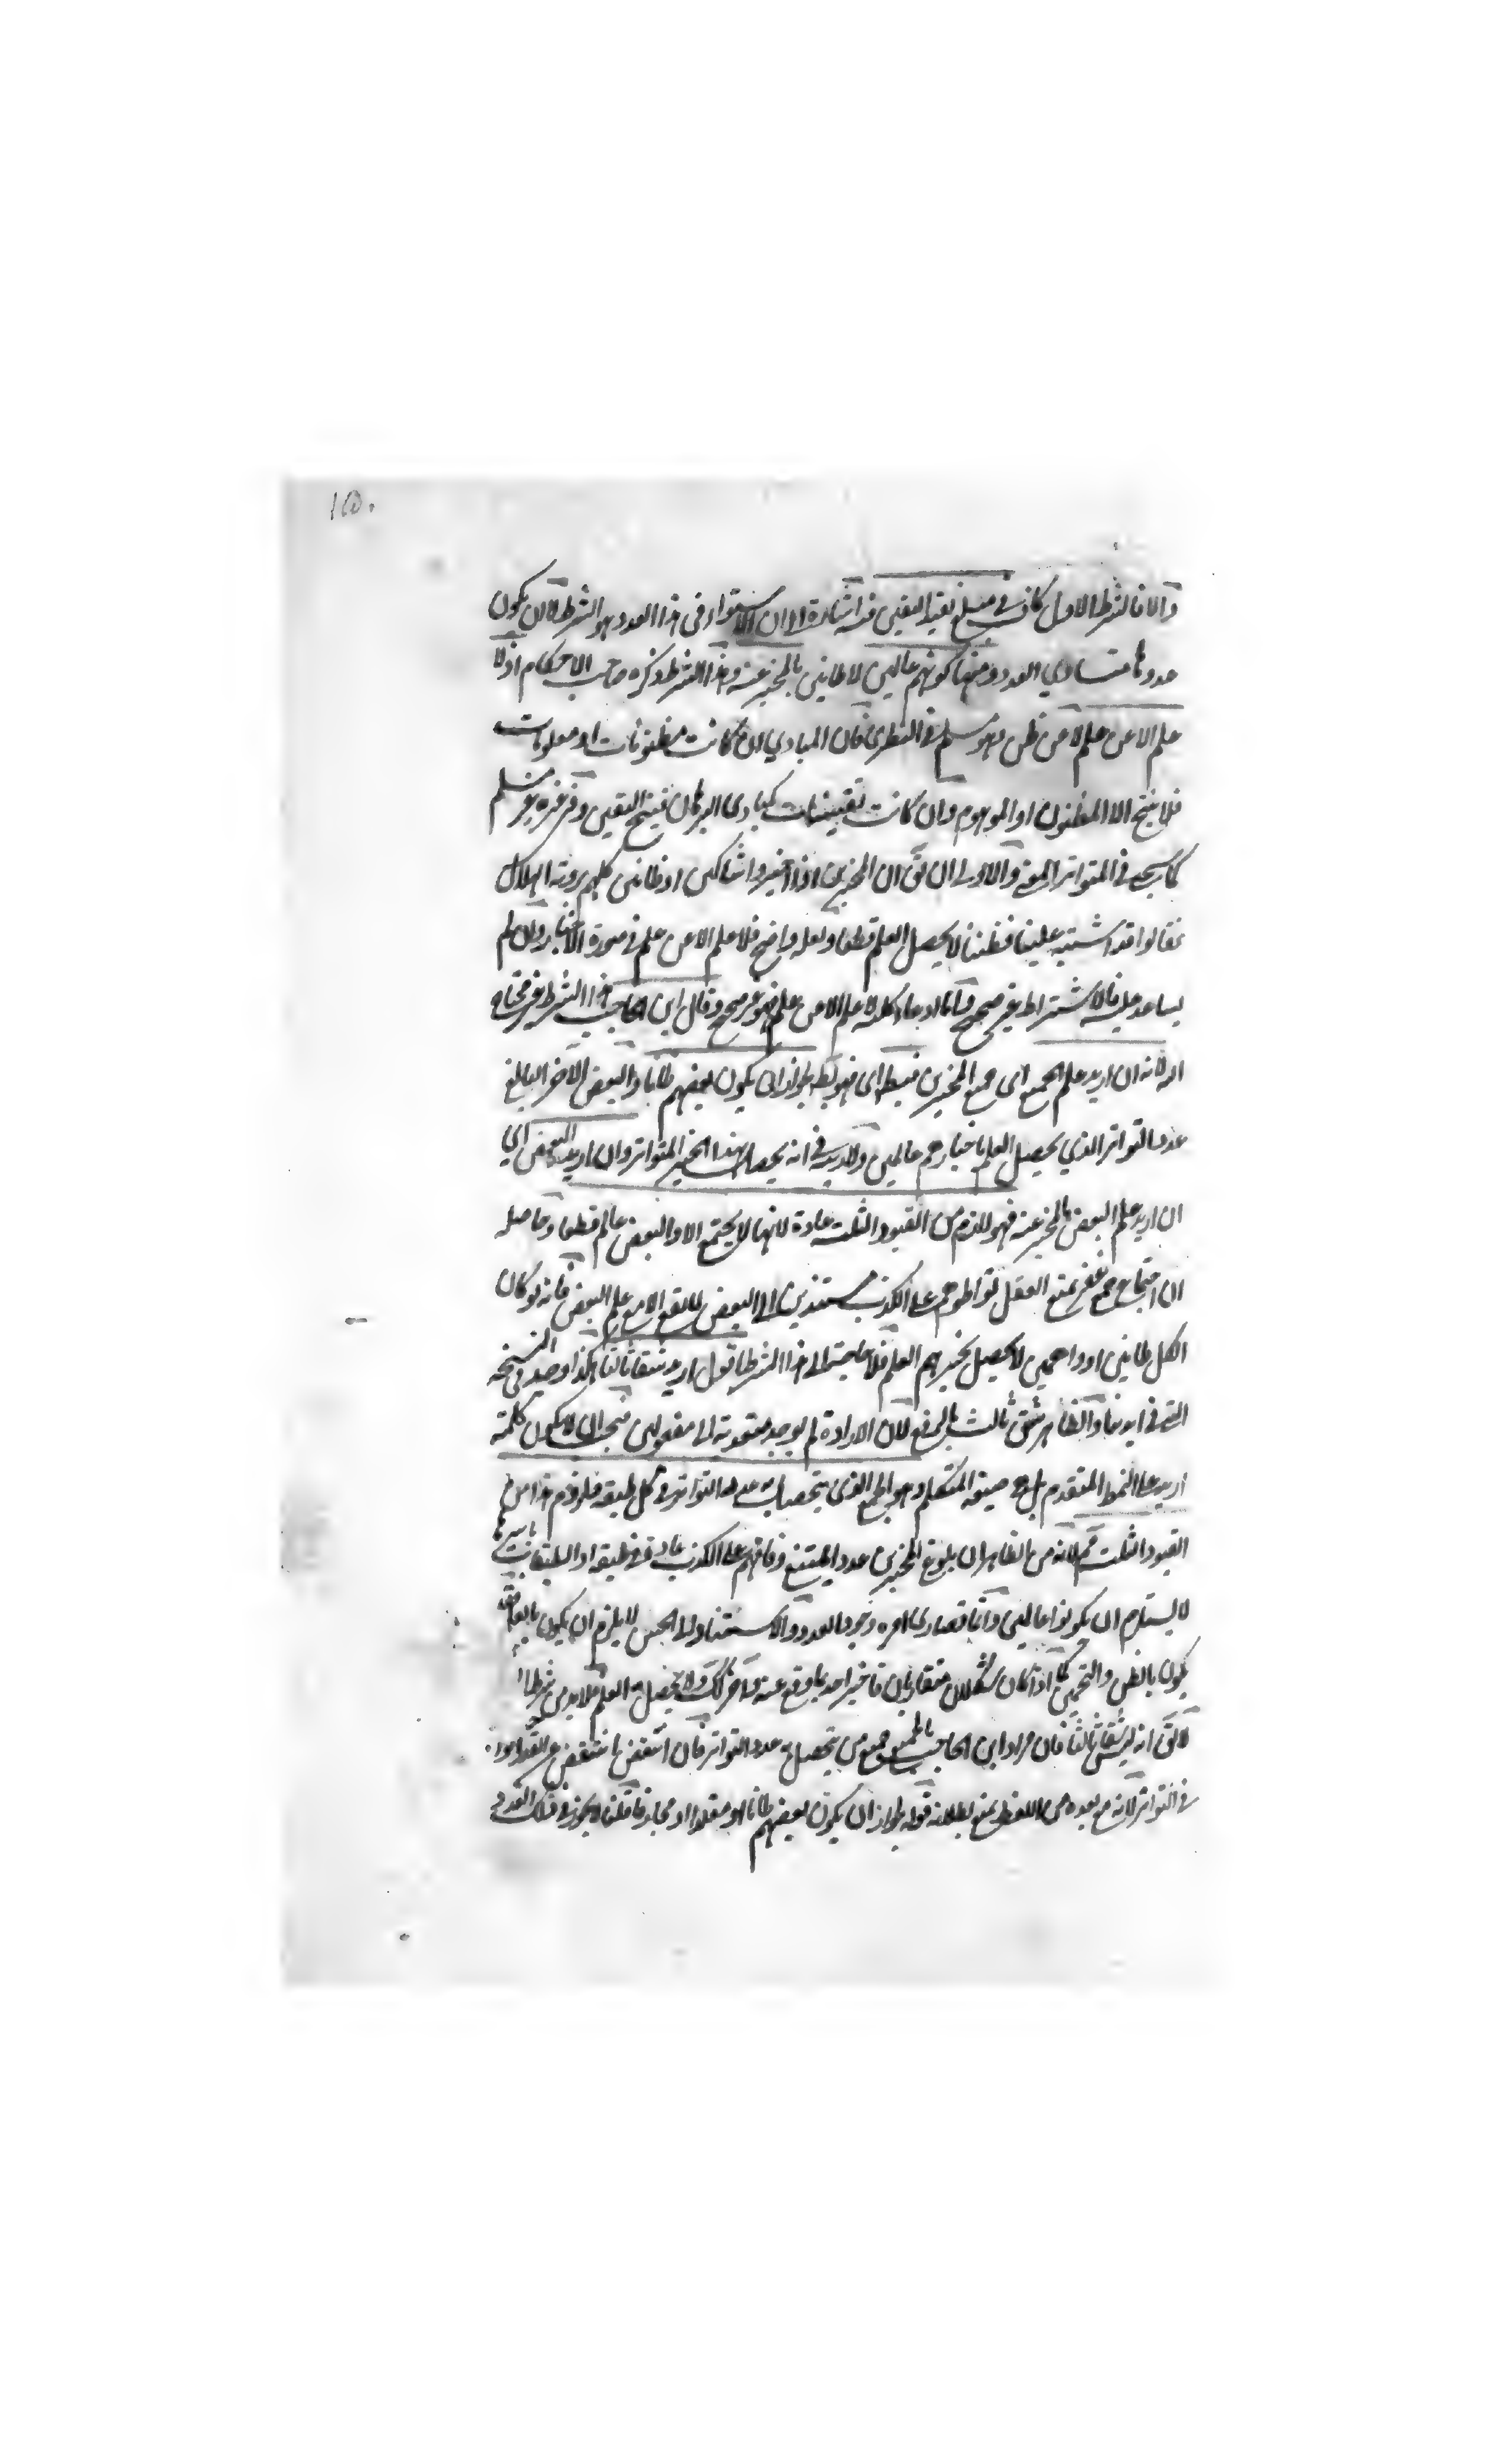 والا فالشرط الاول كاف في مبلغ يفيد اليقين فيه اشارة الى ان الاستواء في هذا العدد هو الشرط لا ان يكون
عددها متساوي العدد ومنها كونهم عالمين لا ظانين بالمخبر عنه وهذا الشرط ذكره صاحب الاحكام اذ لا
علم الا عن علم لا عن ظن وهو مسلم في النظري فان المبادي ان كانت مظنونات او معلومات
فلا ينتج الا المظنون او الموهوم وان كانت يقينيات كمبادي البرهان فينتج اليقين وفي غيره غير مسلم
كما سيجيء في المتواتر والاولى ان يق ان المخبرين اذا اخبروا شاكين او ظانين كلهم برؤية الهلال
فقالوا قد اشتبه علينا فظننا لا يحصل العلم قطعا ولعله واضح فلا علم الا عن علم في صورة الاخبار وان لم
يساعد عليه فالاشتراط غير صحيح واما ادعاء كلية لا علم الا عن علم فهو غير صحيح وقال ابن الحاجب هذا الشرط غير محتاج
اليه لانه ان اريد علم الجميع اي جميع المخبرين فبط اي فهو بط لجواز ان يكون بعضهم ظانا والبعض الآخر البالغ
عدد التواتر الذي يحصل العلم باخبارهم عالمين ولا ريب في انه يحصل بهذا الخبر المتواتر وان اريد البعض اي
ان اريد علم البعض بالمخبر عنه فهو لازم من القيود الثلث عادة لانها لا يجتمع الا والبعض عالم قطعا وحاصله
ان اجتماع جمع غفير يمنع العقل تواطؤهم على الكذب مستندين الى البعض لا يقع الا مع علم البعض فانه لو كان
الكل ظانين او واهمين لا يحصل بخبرهم العلم فلا حاجة الى هذا الشرط اقول اريد شقا ثالثا هكذا وجد في النسخة
التي في ايدينا والظاهر شق ثالث بالرفع لان الارادة لم يوجد متعدية الى مفعولين فيجب ان لا يكون كلمة
اريد على النمط المتقدم بل صيغة المتكلم وهو الجمع الذي يتحصل به عدد التواتر في كل طبقة فلزوم هذا من
القيود الثلث مم لانه من الظاهر ان بلوغ المخبرين عددا يمتنع وفاقهم على الكذب عادة في طبقة او الطبقات باسرها
لا يستلزم ان يكونوا عالمين وانما قصارى امره وجود العدد والاستناد الى الحس لا يلزم ان يكون
يكون بالظن والتخمين كما اذا كان شكلان متقاربان فاخبر احد بما وقع عنه وآخر كك ولا يحصل به العلم فلا بد من شرط
لا يق انه ليس شقا ثالثا فان مراد ابن الحاجب بالجميع جميع من يتحصل به عدد التواتر فان انتقض
في التواتر لانه مع بعده عن اللفظ يمنع بطلانه قوله لجواز ان يكون بعضهم ظانا او مقلدا او مجازفا قلنا لا يجوز في ذلك القدر